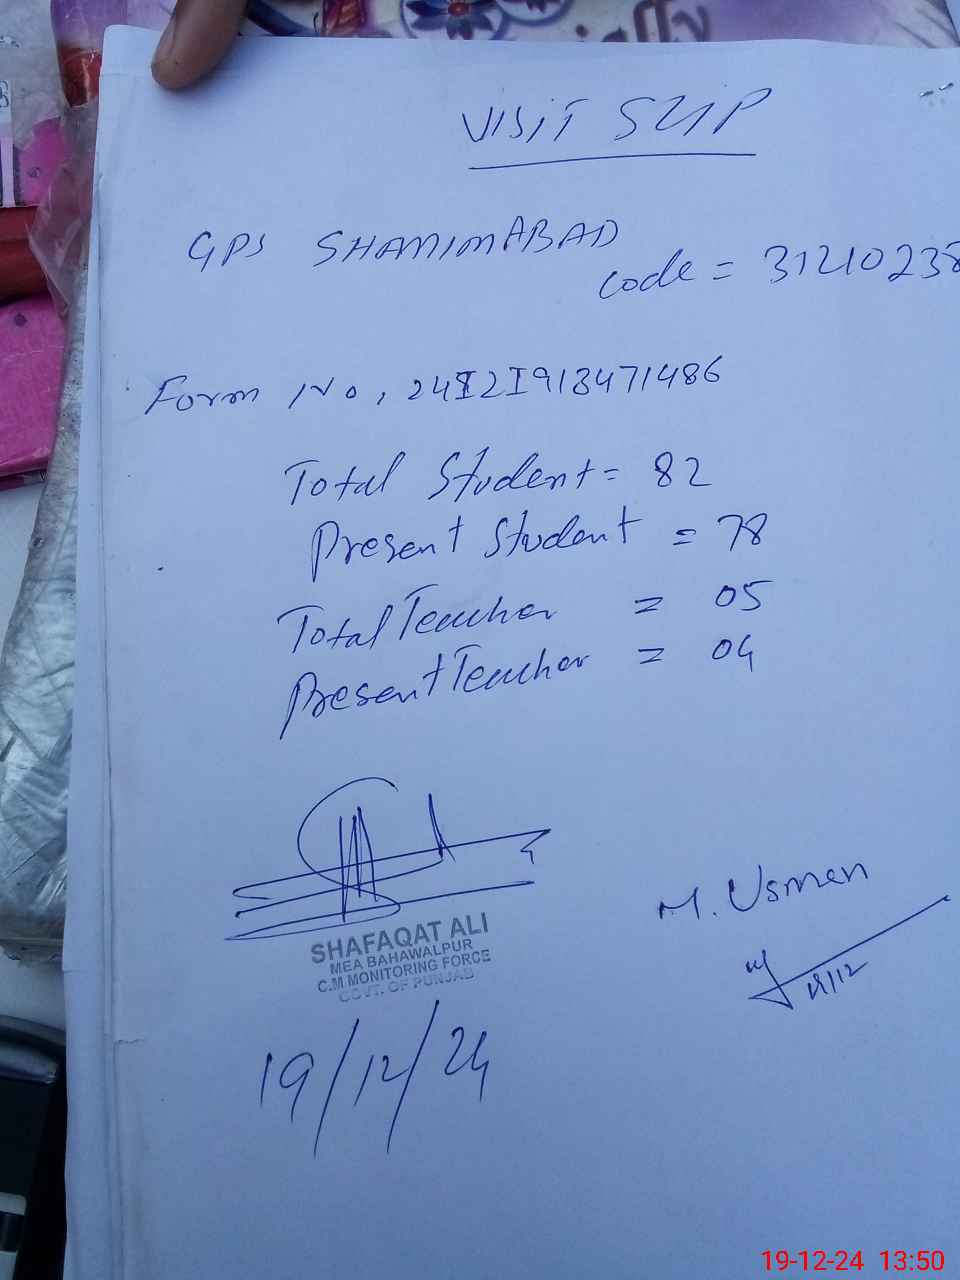 VISIT SLIP
GPS SHAMIMABAD
code = 31210238
Form No, 24I2I913471486
Total Student = 82
Present Student = 78
Total Teacher = 05
Present Teacher = 04
SHAFAQAT ALI
MEA BAHAWALPUR
C.M MONITORING FORCE
GOVT. OF PUNJAB
M. Usman
19/12
19/12/24
19-12-24 13:50